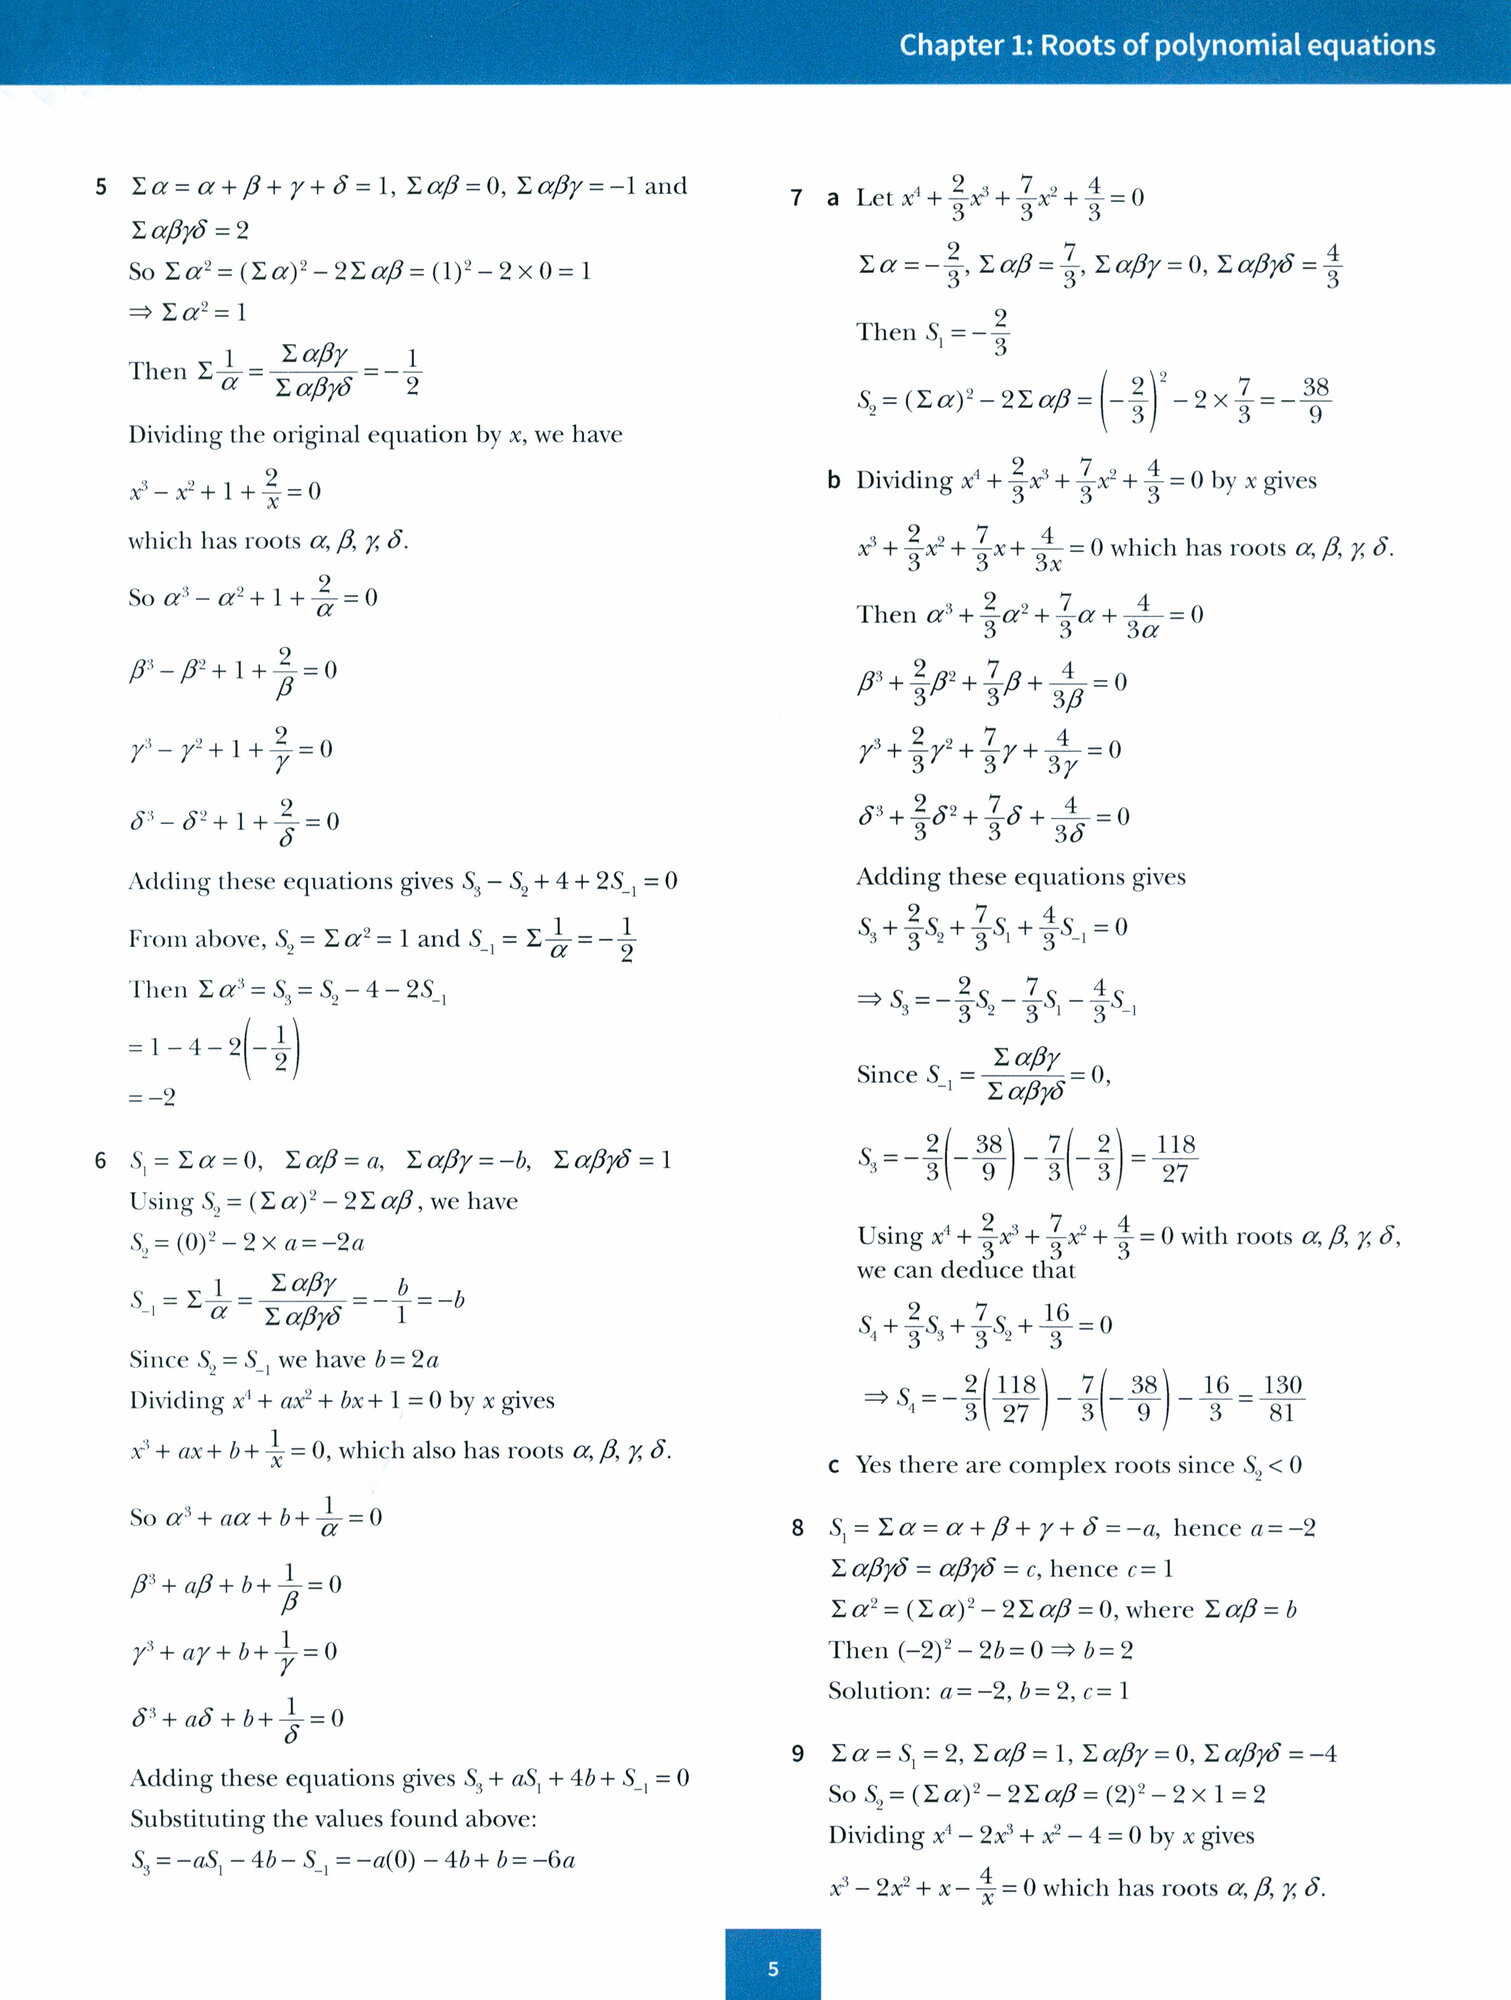 Chapter 1: Roots of polynomial equations
5 Σα = α + β + γ + δ = 1, Σαβ = 0, Σαβγ = −1 and
Σαβγδ = 2
So Σα² = (Σα)² − 2Σαβ = (1)² − 2 × 0 = 1
⇒ Σα² = 1
Then Σ 1/α = Σαβγ/Σαβγδ = −1/2
Dividing the original equation by x, we have
x³ − x² + 1 + 2/x = 0
which has roots α, β, γ, δ.
So α³ − α² + 1 + 2/α = 0
β³ − β² + 1 + 2/β = 0
γ³ − γ² + 1 + 2/γ = 0
δ³ − δ² + 1 + 2/δ = 0
Adding these equations gives S₃ − S₂ + 4 + 2S₋₁ = 0
From above, S₂ = Σα² = 1 and S₋₁ = Σ 1/α = −1/2
Then Σα³ = S₃ = S₂ − 4 − 2S₋₁
= 1 − 4 − 2(−1/2)
= −2
6 S₁ = Σα = 0, Σαβ = a, Σαβγ = −b, Σαβγδ = 1
Using S₂ = (Σα)² − 2Σαβ, we have
S₂ = (0)² − 2 × a = −2a
S₋₁ = Σ 1/α = Σαβγ/Σαβγδ = −b/1 = −b
Since S₂ = S₋₁ we have b = 2a
Dividing x⁴ + ax² + bx + 1 = 0 by x gives
x³ + ax + b + 1/x = 0, which also has roots α, β, γ, δ.
So α³ + aα + b + 1/α = 0
β³ + aβ + b + 1/β = 0
γ³ + aγ + b + 1/γ = 0
δ³ + aδ + b + 1/δ = 0
Adding these equations gives S₃ + aS₁ + 4b + S₋₁ = 0
Substituting the values found above:
S₃ = −aS₁ − 4b − S₋₁ = −a(0) − 4b + b = −6a
7 a Let x⁴ + 2/3 x³ + 7/3 x² + 4/3 = 0
Σα = −2/3, Σαβ = 7/3, Σαβγ = 0, Σαβγδ = 4/3
Then S₁ = −2/3
S₂ = (Σα)² − 2Σαβ = (−2/3)² − 2 × 7/3 = −38/9
b Dividing x⁴ + 2/3 x³ + 7/3 x² + 4/3 = 0 by x gives
x³ + 2/3 x² + 7/3 x + 4/3x = 0 which has roots α, β, γ, δ.
Then α³ + 2/3 α² + 7/3 α + 4/3α = 0
β³ + 2/3 β² + 7/3 β + 4/3β = 0
γ³ + 2/3 γ² + 7/3 γ + 4/3γ = 0
δ³ + 2/3 δ² + 7/3 δ + 4/3δ = 0
Adding these equations gives
S₃ + 2/3 S₂ + 7/3 S₁ + 4/3 S₋₁ = 0
⇒ S₃ = −2/3 S₂ − 7/3 S₁ − 4/3 S₋₁
Since S₋₁ = Σαβγ/Σαβγδ = 0,
S₃ = −2/3(−38/9) − 7/3(−2/3) = 118/27
Using x⁴ + 2/3 x³ + 7/3 x² + 4/3 = 0 with roots α, β, γ, δ,
we can deduce that
S₄ + 2/3 S₃ + 7/3 S₂ + 16/3 = 0
⇒ S₄ = −2/3(118/27) − 7/3(−38/9) − 16/3 = 130/81
c Yes there are complex roots since S₂ < 0
8 S₁ = Σα = α + β + γ + δ = −a, hence a = −2
Σαβγδ = αβγδ = c, hence c = 1
Σα² = (Σα)² − 2Σαβ = 0, where Σαβ = b
Then (−2)² − 2b = 0 ⇒ b = 2
Solution: a = −2, b = 2, c = 1
9 Σα = S₁ = 2, Σαβ = 1, Σαβγ = 0, Σαβγδ = −4
So S₂ = (Σα)² − 2Σαβ = (2)² − 2 × 1 = 2
Dividing x⁴ − 2x³ + x² − 4 = 0 by x gives
x³ − 2x² + x − 4/x = 0 which has roots α, β, γ, δ.
5